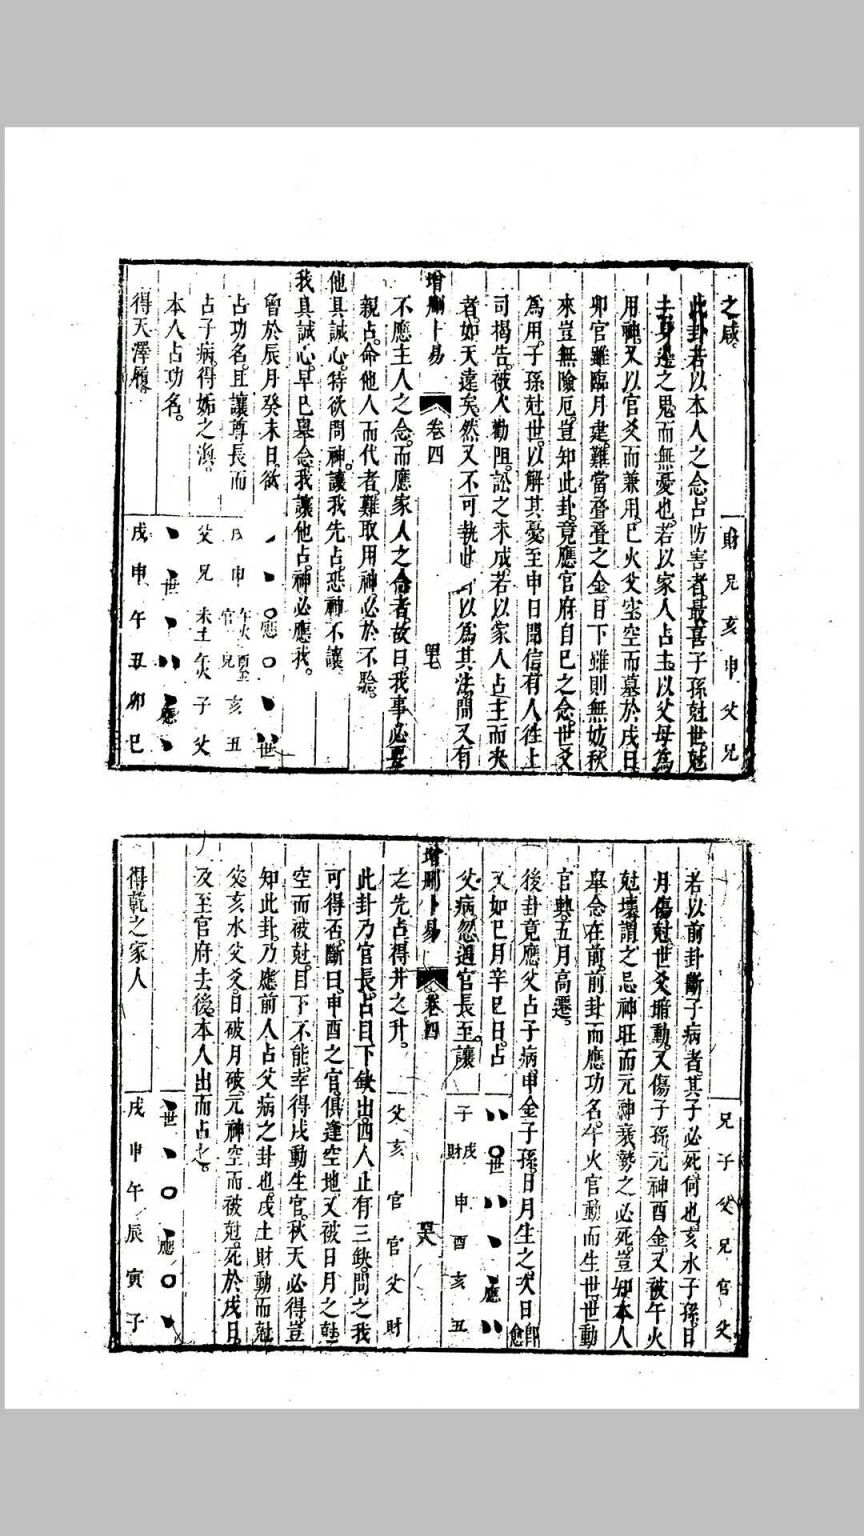 之咸。
財兄亥申父兄
此卦若以本人之念占防害者。最喜子孫尅世。尅
去身邊之鬼而無憂也。若以家人占主以父母為
用神。又以官爻而兼用。巳火父空空而墓於戌日。
卯官雖臨月建。難當叠叠之金。目下雖則無妨。秋
來豈無險厄。豈知此卦。竟應官府自巳之念。世爻
為用。子孫尅世。以解其憂。至申日聞信。有人徃上
司揭告。被人勸阻。訟之未成。若以家人占主而夬
者。如天遠矣。然又不可執此 以為其法。間又有
增刪卜易
卷四
不應主人之念。而應家人之念者。故曰。我事必要
親占。命他人而代者。難取用神。必於不驗。
他具誠心。特欲問神。讓我先占。恐神不讓。
我具誠心。早巳舉念。我讓他占。神必應我。
曾於辰月癸未日。欲
應 世
占功名。且讓尊長而
戌申 午火 酉金 亥丑
官 兄
占子病。得姤之渙。
父兄未土午火子父
本人占功名。
世 應
得天澤履。
戌申午丑卯巳
兄子父兄官父
若以前卦斷子病者。其子必死。何也。亥水子孫。日
月傷尅。世爻暗動。又傷子孫。元神酉金。又被午火
尅壞。謂之忌神旺而元神衰。勢之必死。豈知本人
舉念在前。前卦而應功名。午火官動而生世。世動
官興。五月高遷。
後卦竟應父占子病。申金子孫。日月生之。次日卽愈
又如巳月辛巳日。占
世 應
父病。忽遇官長至。讓
子 戌 申酉亥丑
財
增刪卜易
卷四
之先占得井之升。
父亥官官父財
此卦乃官長占目下缺出。四人止有三缺。問之我
可得否。斷曰。申酉之官。俱逢空地。又被日月之尅
空而被尅。目下不能。幸得戌動生官。秋天必得。豈
知此卦。乃應前人占父病之卦也。戌土財動而尅
父。亥水父爻。日破月破。元神空而被尅。死於戌日。
及至官府去後。本人出而占之。
世 應
得乾之家人
戌申午辰寅子